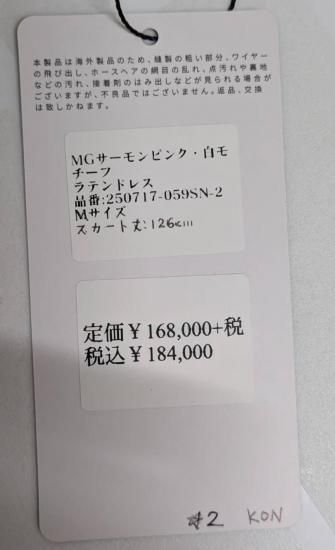 本製品は海外製品のため、縫製の粗い部分、ワイヤー
の飛び出し、ホースヘアの網目の乱れ、点汚れや裏地
などの汚れ、接着剤のはみ出しなどが見られる場合が
ございますが、不良品ではございません。返品、交換
は致しかねます。
MGサーモンピンク・白モ
チーフ
ラテンドレス
品番:250717-059SN-2
Mサイズ
スカート丈:126cm
定価￥168,000+税
税込￥184,000
#2 KON